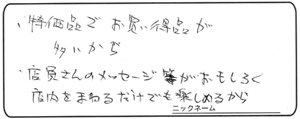 ・特価品でお買い得品が
多いから
・店員さんのメッセージ等がおもしろく
店内をまわるだけでも楽しめるから
ニックネーム